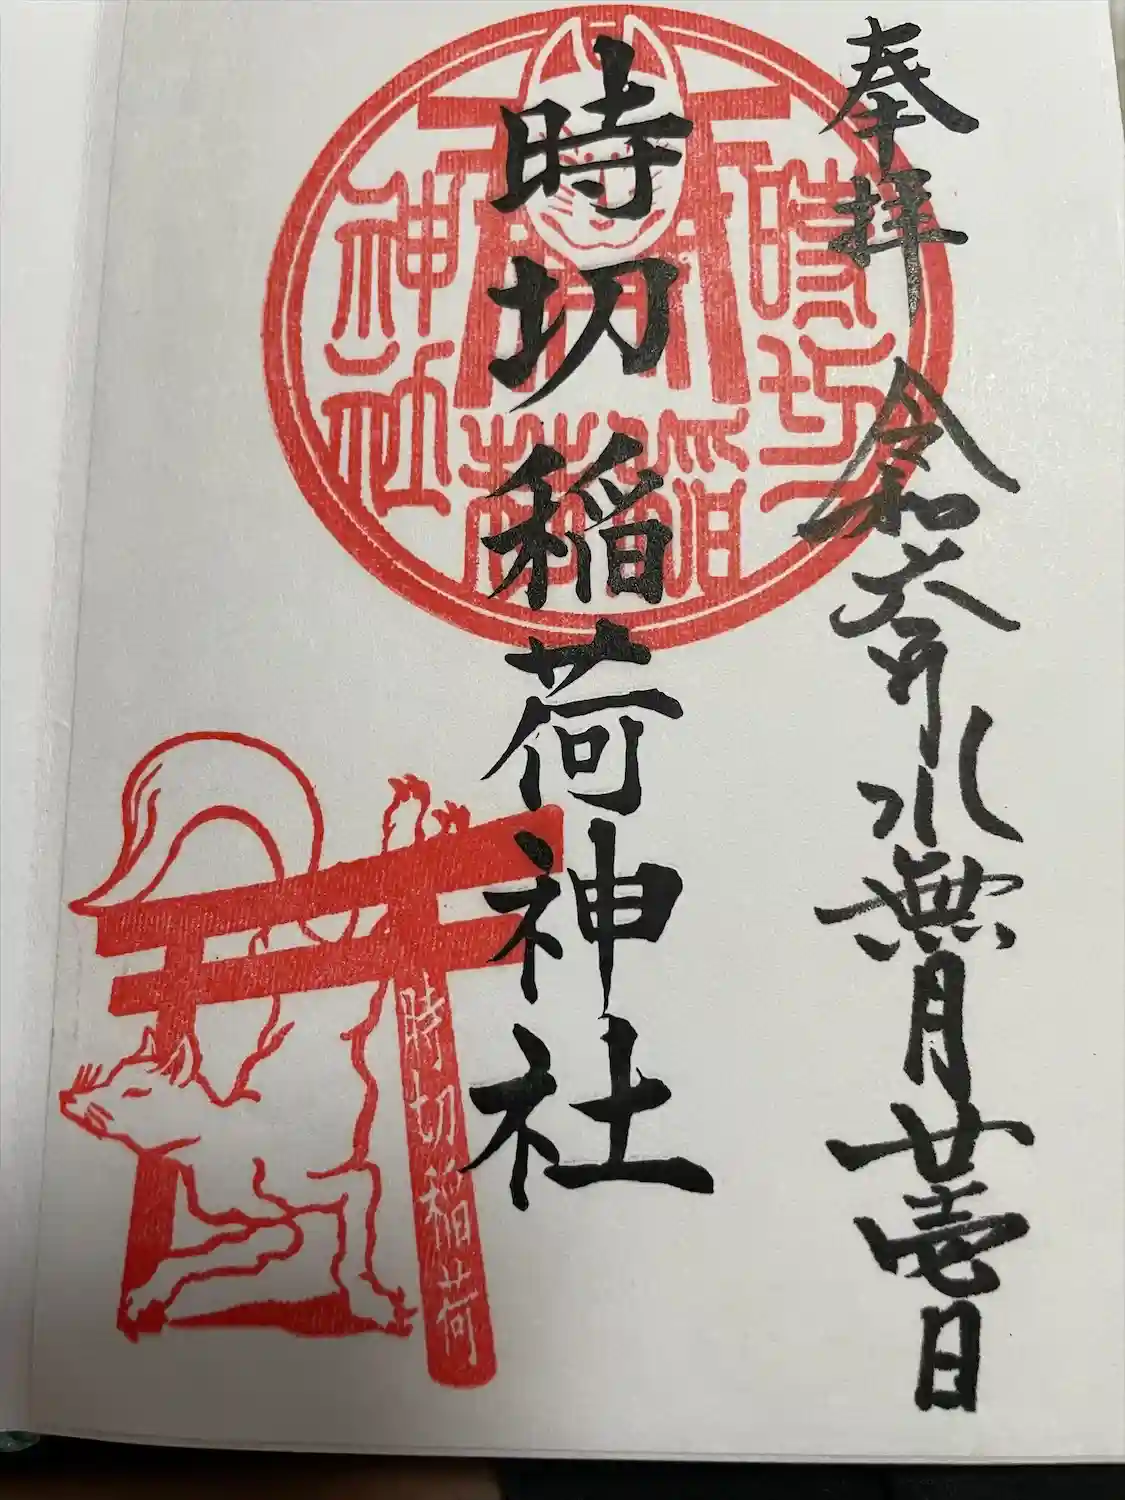 奉拝 令和六年水無月廿壱日
時切稲荷神社
時切
稲荷
神社
時切稲荷